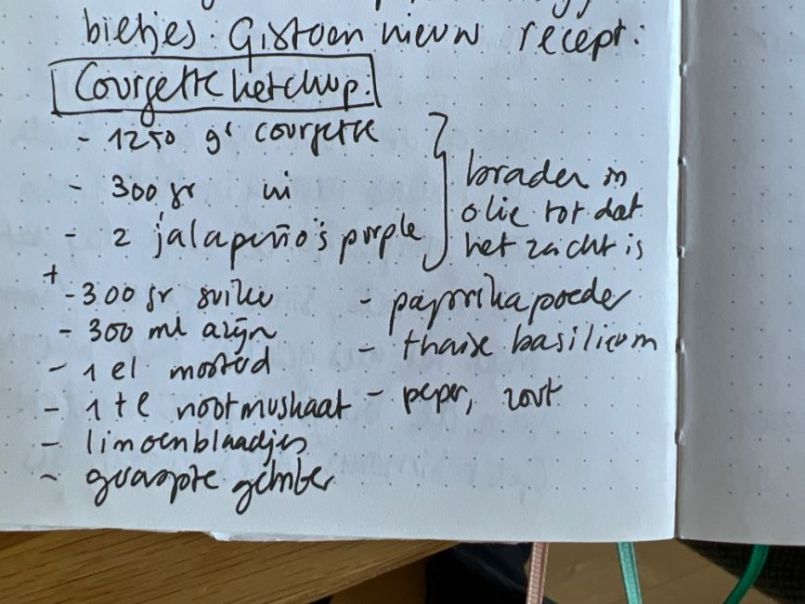 bietjes. Gistoen nieuw recept:
Courgette ketchup.
- 1250 gr courgette
- 300 gr ui
- 2 jalapeño's purple
braden in
olie tot dat
het zacht is
+
- 300 gr suiker
- 300 ml azijn
- 1 el mosterd
- 1 te nootmuskaat
- limoenblaadjes
- geraspte gember
- paprikapoeder
- thaise basilicum
- peper, zout